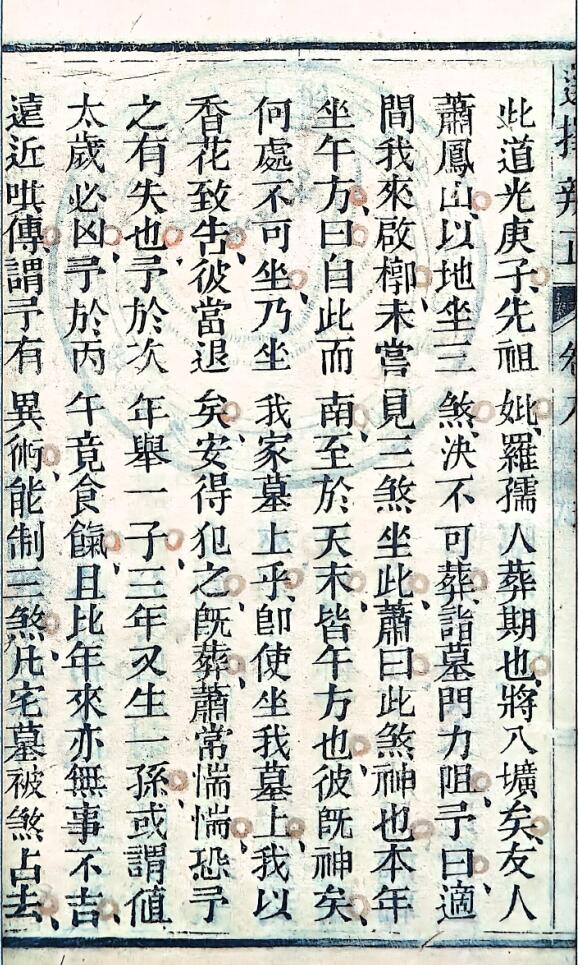 此道光庚子先祖妣羅孺人葬期也將入壙矣友人
蕭鳳山以地坐三煞決不可葬詣墓門力阻予曰適
間我來啟槨未嘗見三煞坐此蕭曰此煞神也本年
坐午方曰自此而南至於天末皆午方也彼既神矣
何處不可坐乃坐我家墓上乎即使坐我墓上我以
香花致告彼當退矣安得犯之既葬蕭常惴惴恐予
之有失也予於次年舉一子三年又生一孫或謂值
太歲必凶予於丙午竟食餼且比年來亦無事不吉
遠近哄傳謂予有異術能制三煞凡宅墓被煞占去